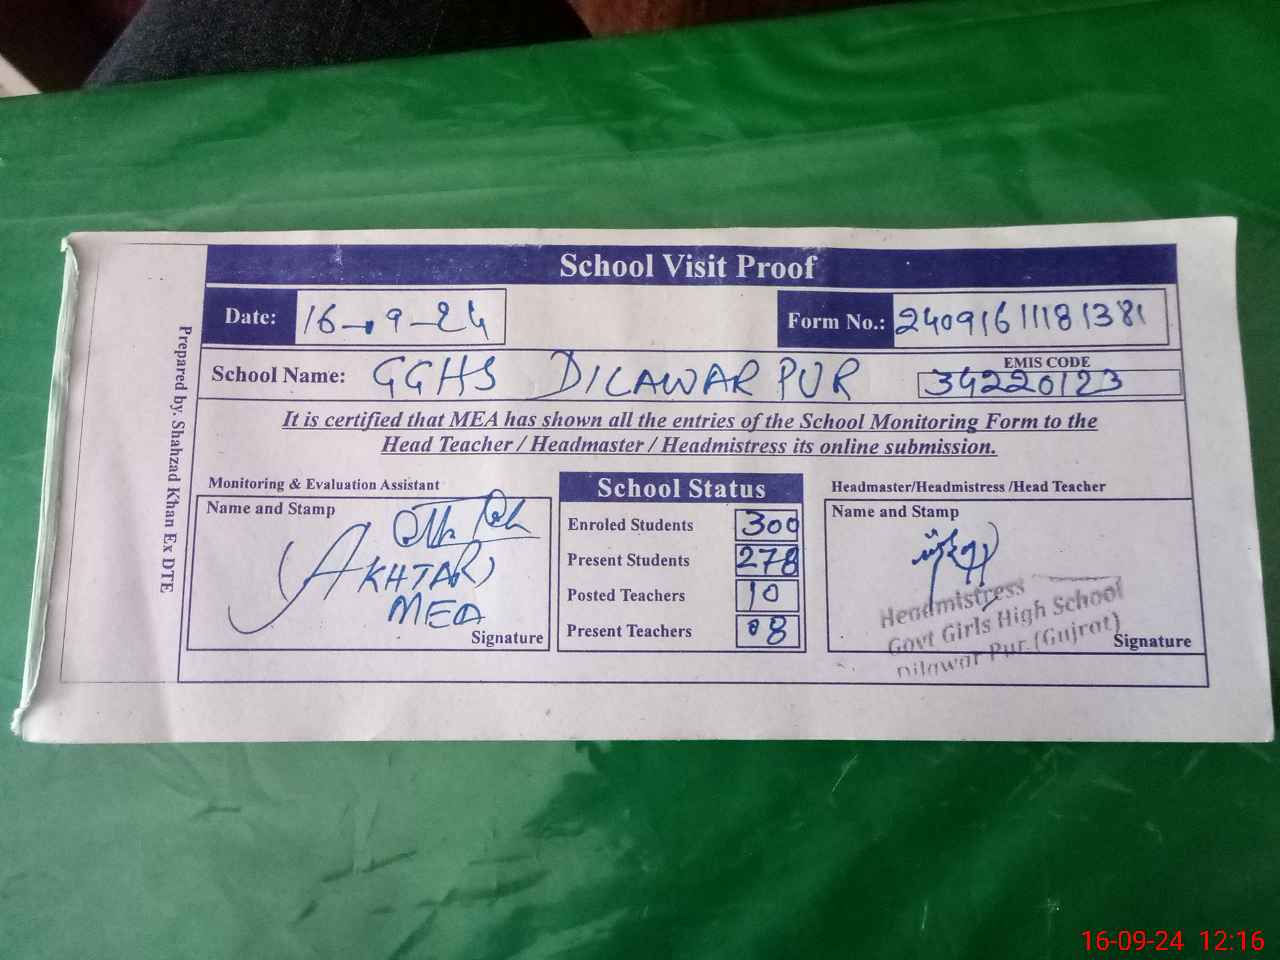 School Visit Proof
Date: 16-9-24
Form No.: 2409161118 1381
School Name: GGHS DILAWAR PUR
EMIS CODE
34220123
It is certified that MEA has shown all the entries of the School Monitoring Form to the
Head Teacher / Headmaster / Headmistress its online submission.
Monitoring & Evaluation Assistant
Name and Stamp
(AKHTAR)
MEA
Signature
School Status
Enroled Students 300
Present Students 278
Posted Teachers 10
Present Teachers 08
Headmaster/Headmistress /Head Teacher
Name and Stamp
Headmistress
Govt Girls High School
Dilawar Pur. (Gujrat)
Signature
Prepared by. Shahzad Khan Ex DTE
16-09-24 12:16